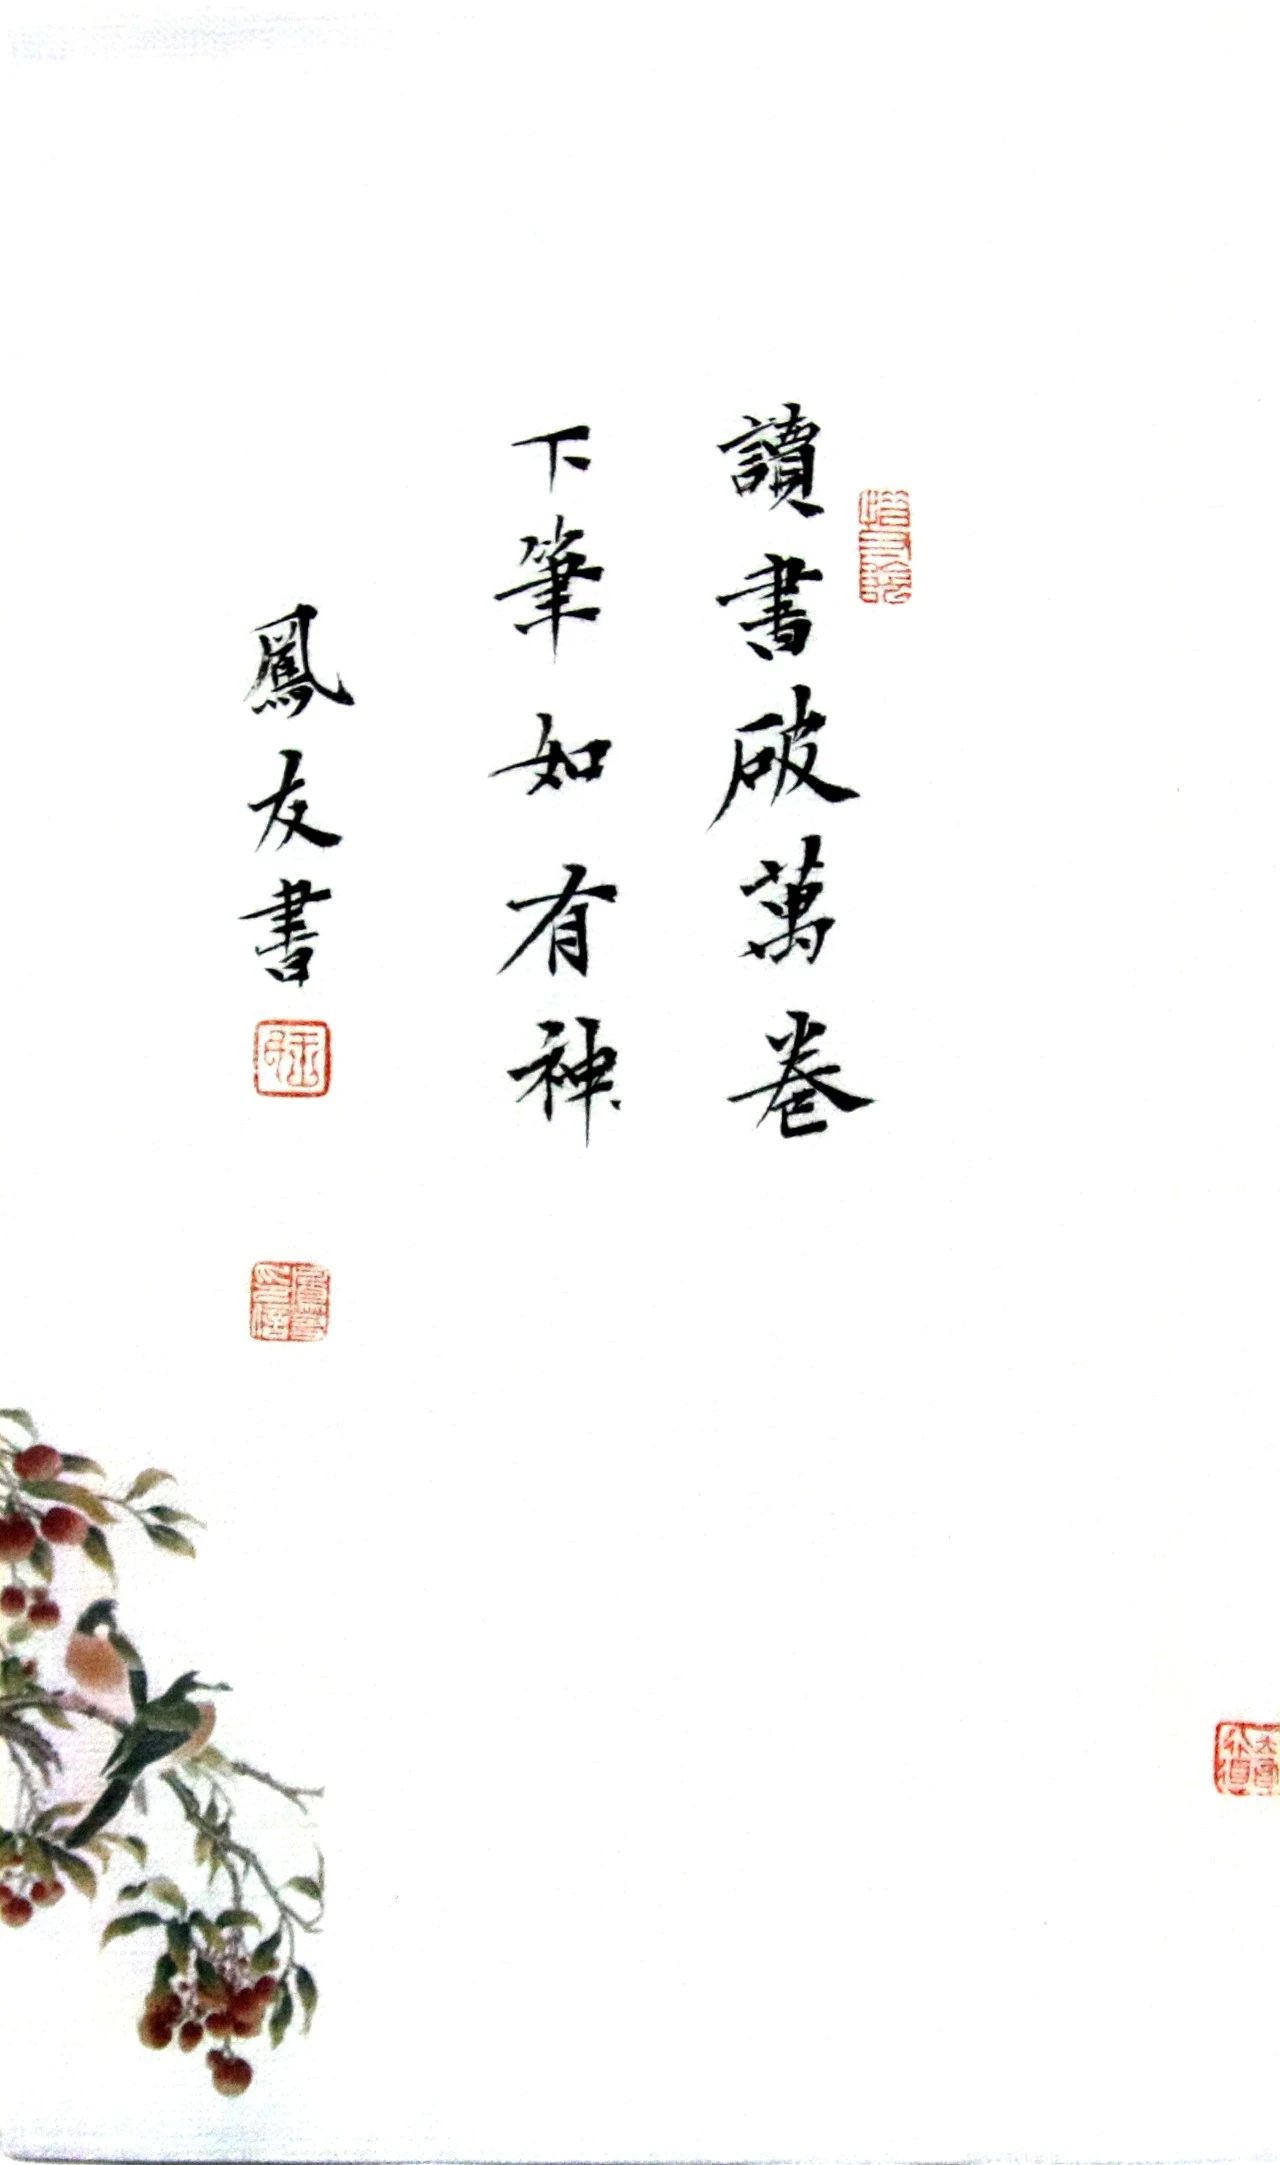 讀書破萬卷
下筆如有神
鳳友書